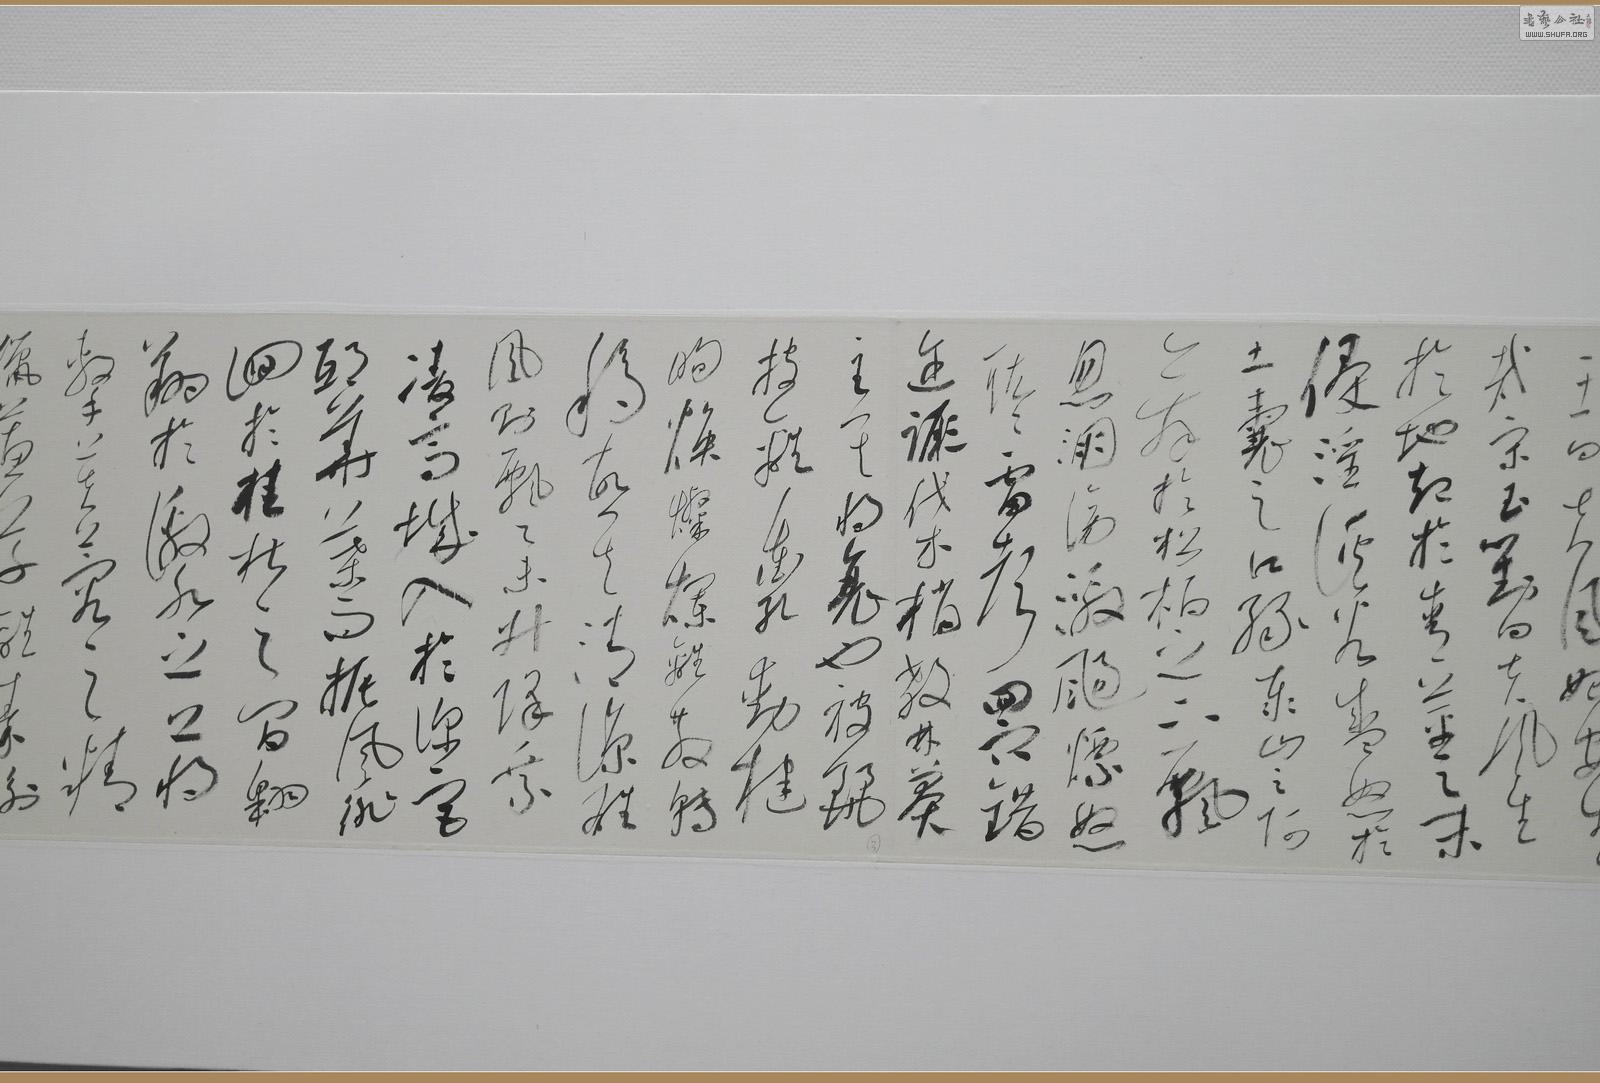 書藝公社
WWW.SHUFA.ORG
王曰夫風始安生
哉宋玉對曰夫風生
於地起於青蘋之末
侵淫谿谷盛怒於
土囊之口緣泰山之阿
舞於松柏之下飄
忽淜滂激颺熛怒
耾々雷聲迴穴錯
迕蹶伐木梢殺林莽
至其將衰也被麗
披離衝孔動楗
眴煥燦爛離散轉
移故其清涼雄
風則飄舉升降乘
凌高城入於深宮
邸華葉而振風徘
徊於桂椒之間翱
翔於激水之上將
擊芙蓉之精
獵蕙草離秦衡